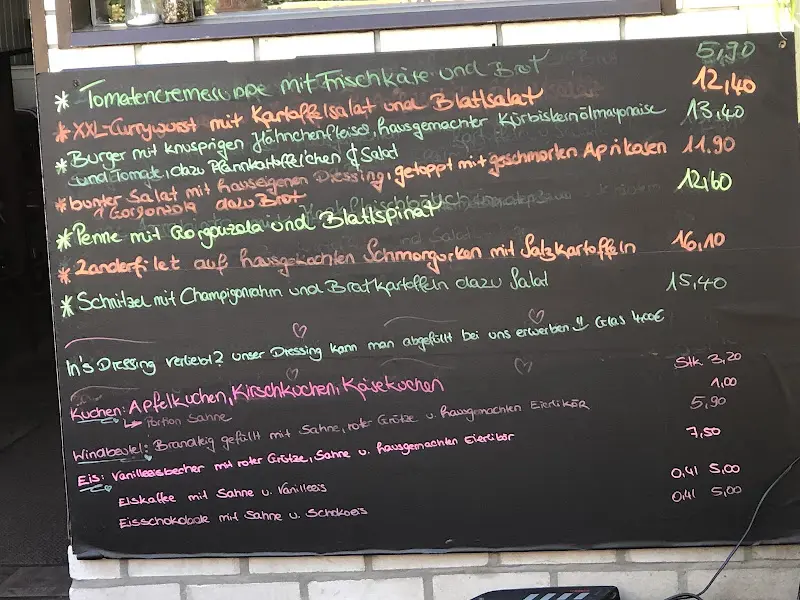 * Tomatencremesuppe mit Frischkäse und Brot 5,90
* XXL-Currywurst mit Kartoffelsalat und Blattsalat 12,40
* Burger mit knusprigen Hähnchenfleisch, hausgemachter Kürbiskernölmayonaise 13,40
und Tomate, dazu Pfannkartoffelchen & Salat
* bunter Salat mit hauseigenen Dressing, getoppt mit geschmorten Aprikosen 11.90
& Gorgonzola dazu Brot
* Penne mit Gorgonzola und Blattspinat 12,60
* Zanderfilet auf hausgekochten Schmorgurken mit Salzkartoffeln 16,10
* Schnitzel mit Champignonrahm und Bratkartoffeln dazu Salat 15,40
In's Dressing verliebt? unser Dressing kann man abgefüllt bei uns erwerben!! Glas 4,00€
Kuchen: Apfelkuchen, Kirschkuchen, Käsekuchen Stk 3,20
Portion Sahne 1,00
Windbeutel: Brandteig gefüllt mit Sahne, roter Grütze u. hausgemachten Eierlikör 5,90
Eis: Vanilleeisbecher mit roter Grütze, Sahne u. hausgemachten Eierlikör 7,50
Eiskaffee mit Sahne u. Vanilleeis 0,4l 5,00
Eisschokolade mit Sahne u. Schokoeis 0,4l 5,00